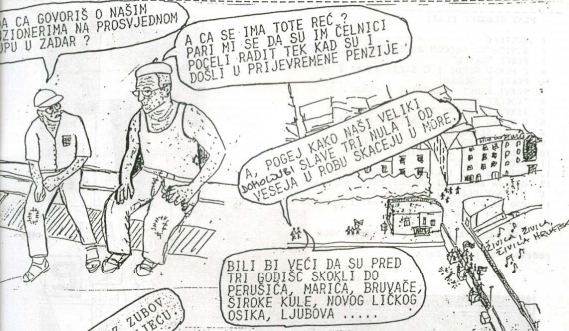 A CA GOVORIŠ O NAŠIM
NZIONERIMA NA PROSVJEDNOM
U ZADAR ?
A CA SE IMA TOTE REĆ ?
PARI MI SE DA SU IM ČELNICI
POČELI RADIT TEK KAD SU I
DOŠLI U PRIJEVREMENE PENZIJE.
A, POGEJ KAKO NAŠI VELIKI
DOMOLJUBI SLAVE TRI NULA I OD
VESEJA U ROBU SKAČEJU U MORE.
ŽIVILA, ŽIVILA,
ŽIVILA
BILI BI VEĆI DA SU PRED
TRI GODIŠĆ SKOKLI DO
PERUŠIĆA, MARIĆA, BRUVAČE,
ŠIROKE KULE, NOVOG LIČKOG
OSIKA, LJUBOVA .....
ZUBOV